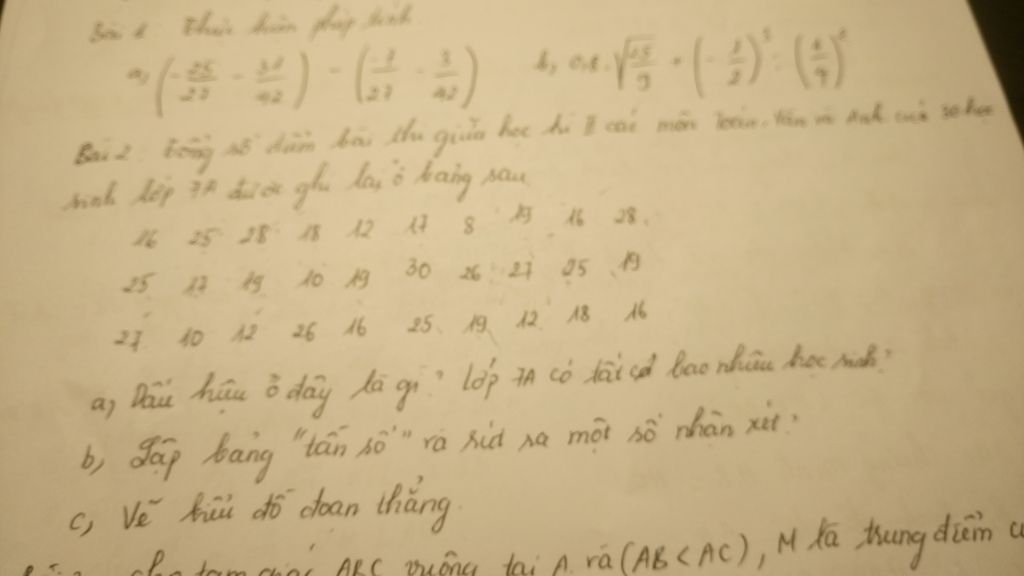 Bài 1 Thực hiện phép tính
a, (-25/27 - 31/42) - (-7/27 - 3/42) b, √ + (-1/2) :
Bài 2. Tổng số điểm bài thi giữa học kì II các môn Toán, Văn và Anh của học
sinh lớp 7A được ghi lại ở bảng sau
16 25 28 18 12 17 8 19 16 28
25 17 19 10 19 30 26 27 25 19
27 10 12 26 16 25 19 12 18 16
a, Dấu hiệu ở đây là gì? Lớp 7A có tất cả bao nhiêu học sinh?
b, Lập bảng "tần số" và rút ra một số nhận xét.
c, Vẽ biểu đồ đoạn thẳng.
cho tam giác ABC vuông tại A và (AB < AC), M là trung điểm